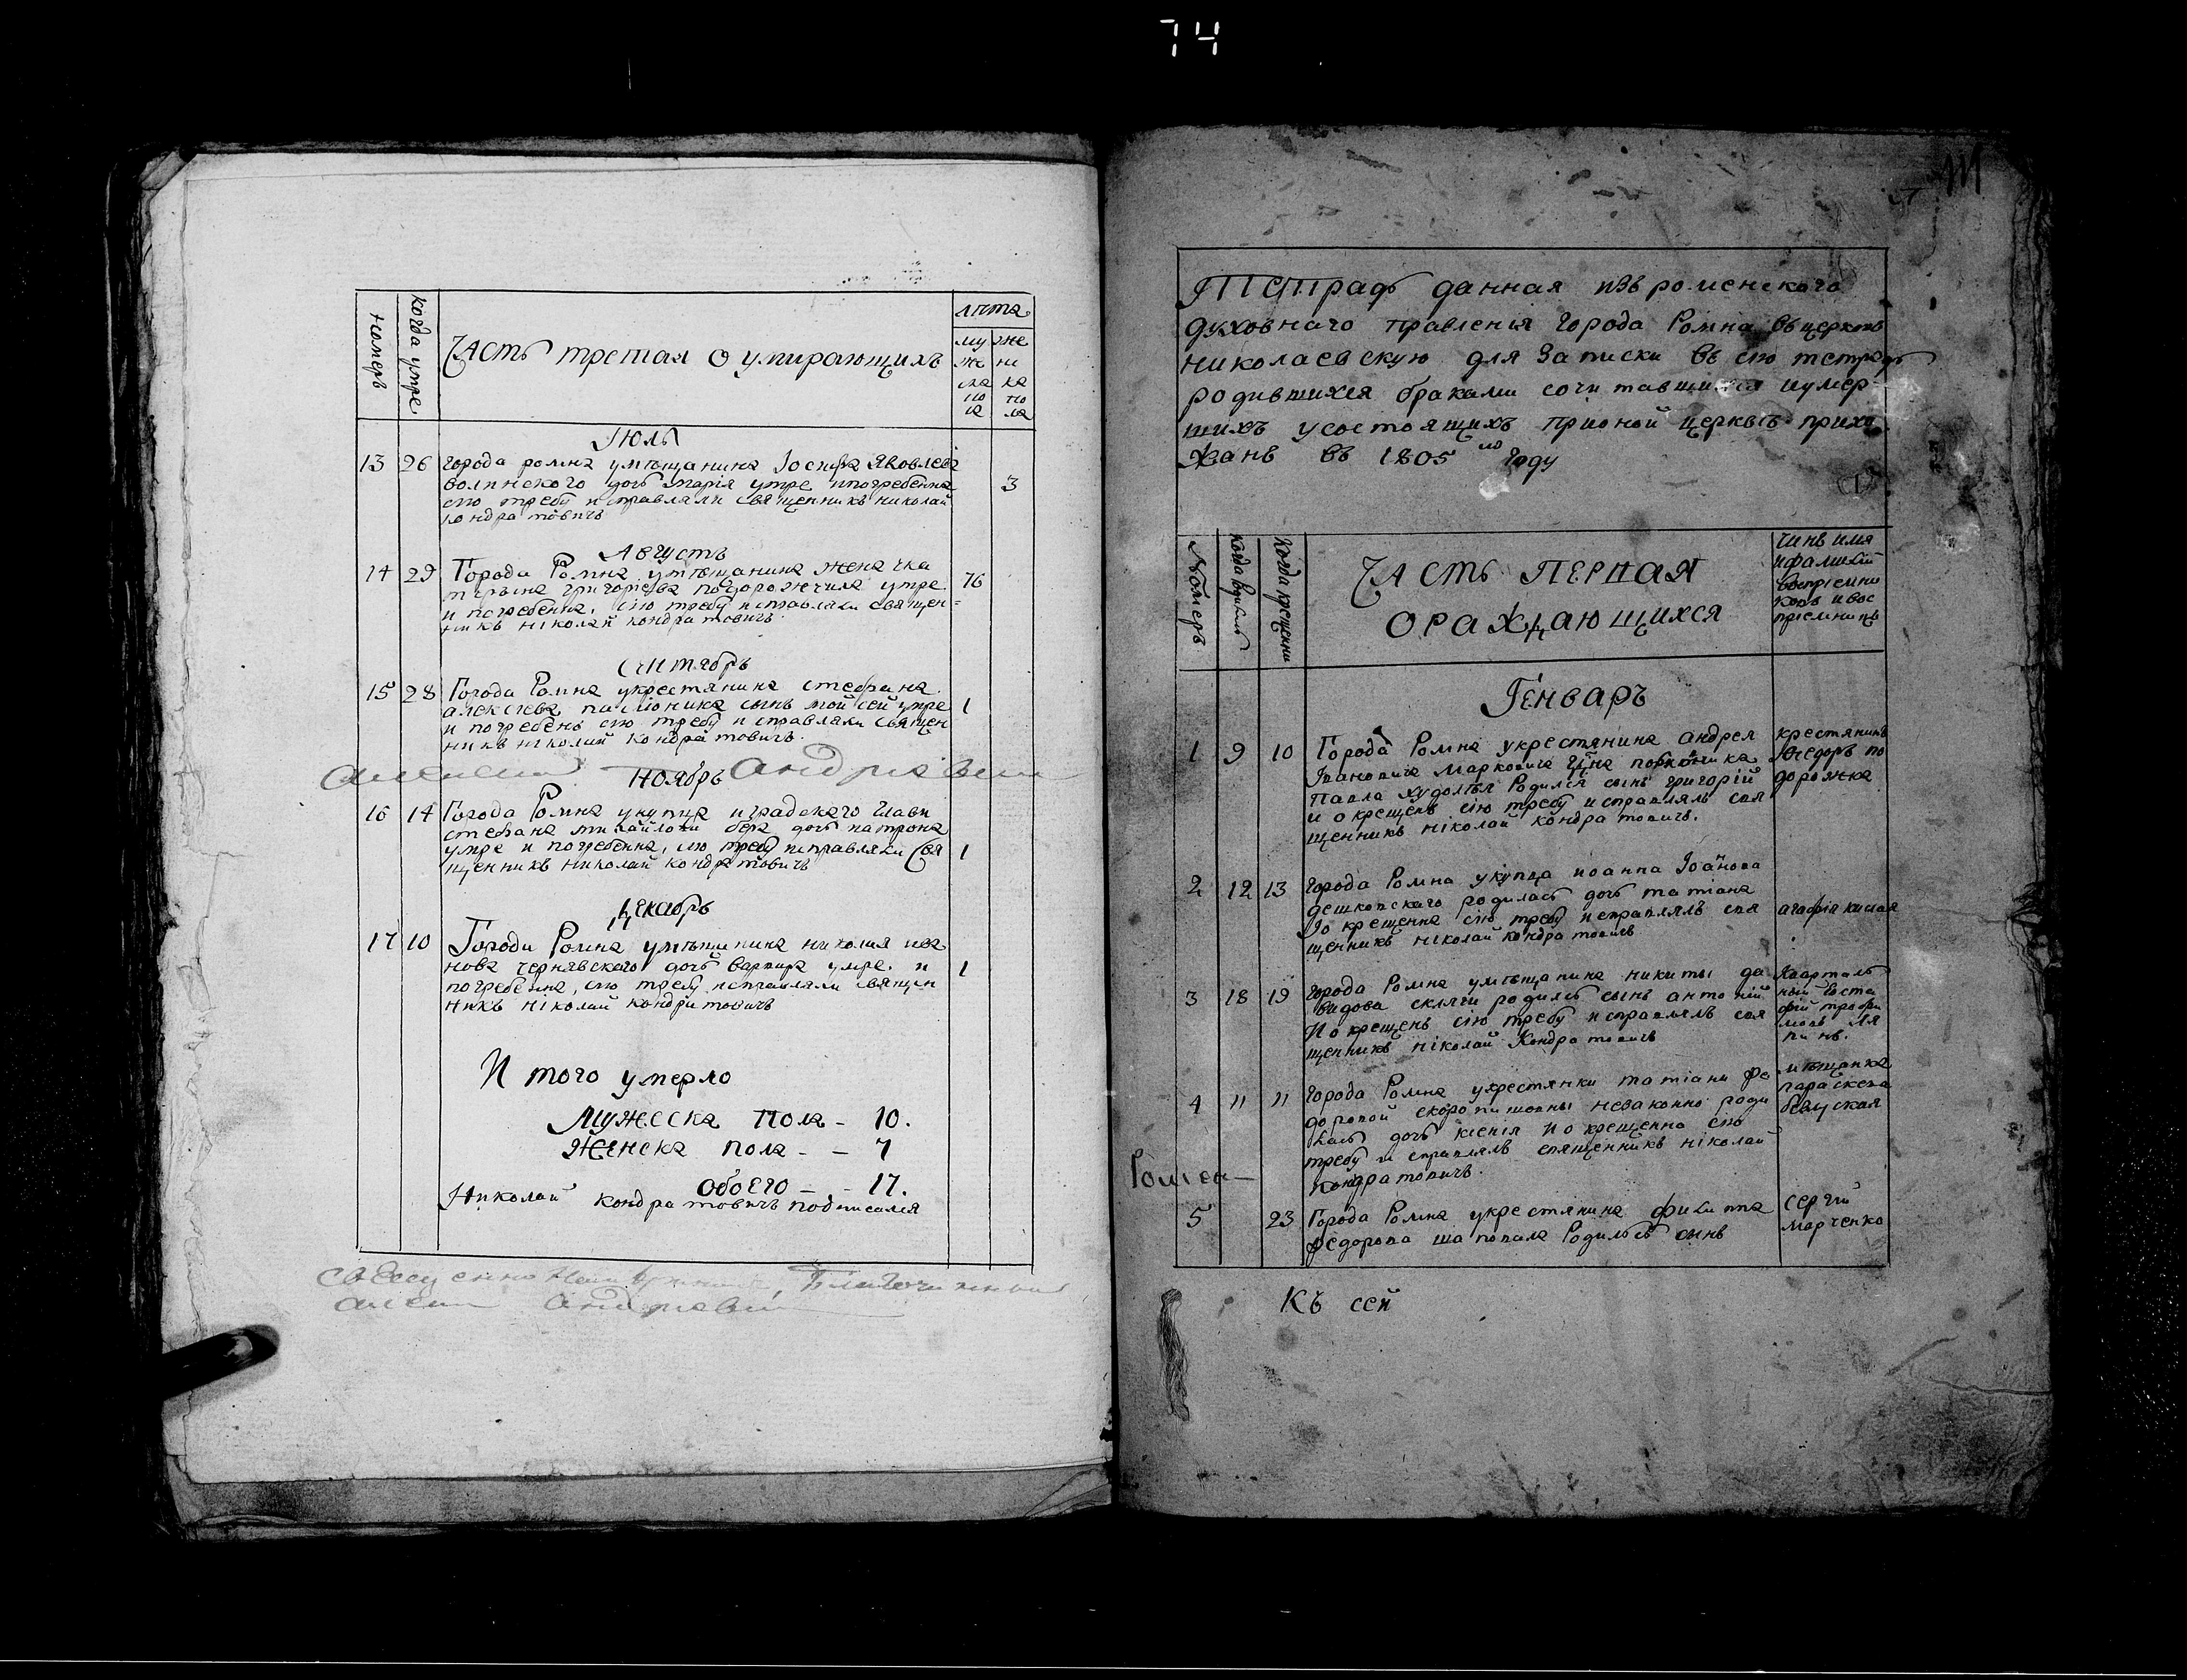 74
номеръ
когда умре
Часть третая о умирающихъ
лѣта
му же
же ни
ска ка
по по
ла ла
Іюль
13 26 города ромна умѣщанина Іосифа Яковлева
волинского дочь марія умре ипогребенна 3
сію требу исправляли священникъ николай
кондратовичъ
Августъ
14 29 Города Ромна умѣщанина жена
григоріева умре 76
и погребенна, сію требу исправляли священ=
никъ ніколай кондратовичъ
Сентябрь
15 28 Города Ромна укрестянина стефана
алексіева сынъ мойсей умре 1
и погребенъ сію требу исправляли священ
никъ ніколай кондратовичъ.
Ноябрь
16 14 Города Ромна укупца иградского глави
стефана михайлова дочь
умре и погребенна, сію требу исправляли свя 1
щенникъ николай кондратовичъ
Декабрь
17 10 Города Ромна умѣщанина николая ива
нова чернявского дочь варвара умре и 1
погребенна, сію требу исправляли священ
никъ ніколай кондратовичъ
И того умерло
Мужеска пола - 10.
Женска пола - - 7
Обоего - - 17.
Николай кондратовичъ подписался
Благочинный
111
Тетрадь данная изъ роменского
духовнаго правленія города Ромна въ церковь
николаевскую для записки въ сію тетрадь
родившихся браками сочитавшихся иумер-
шихъ усостоящихъ прионой церквѣ прихо
жанъ въ 1805 мъ году
Номеръ
когда родились
когда крещенни
Часть первая
оражdaющихся
чинъ имя
ифамилій
воспріемни
ковъ ивос
пріемницъ
Генварь
1 9 10 Города Ромна укрестянина андрея крестянинъ
Івановича Марковича феодоръ по
Павла худолѣя Родился сынъ григорій дорожка
и окрещенъ сію требу исправлялъ свя
щенникъ ніколай кондратовичъ.
2 12 13 города Ромна укупца иоанна Іоанова
родилась дочь татіана
Іокрещенна сію требу исправлялъ свя агафія кислая
щенникъ ніколай кондратовичъ
3 18 19 города Ромна умѣщанина никиты да кварталь
видова родился сынъ антоній ный Евста
Иокрещенъ сію требу исправлялъ свя фій трофи
щенникъ ніколай Кондратовичъ мовъ
4 11 11 Города Ромна укрестянки татіани фе мѣщанка
доровой незаконно роди параскева
лась дочь ксенія Иокрещенна сію
требу исправлялъ священникъ ніколай
кондратовичъ.
5 23 Города Ромна укрестянина филипа сергій
федорова шаповала Родился сынъ марченко
Къ сей